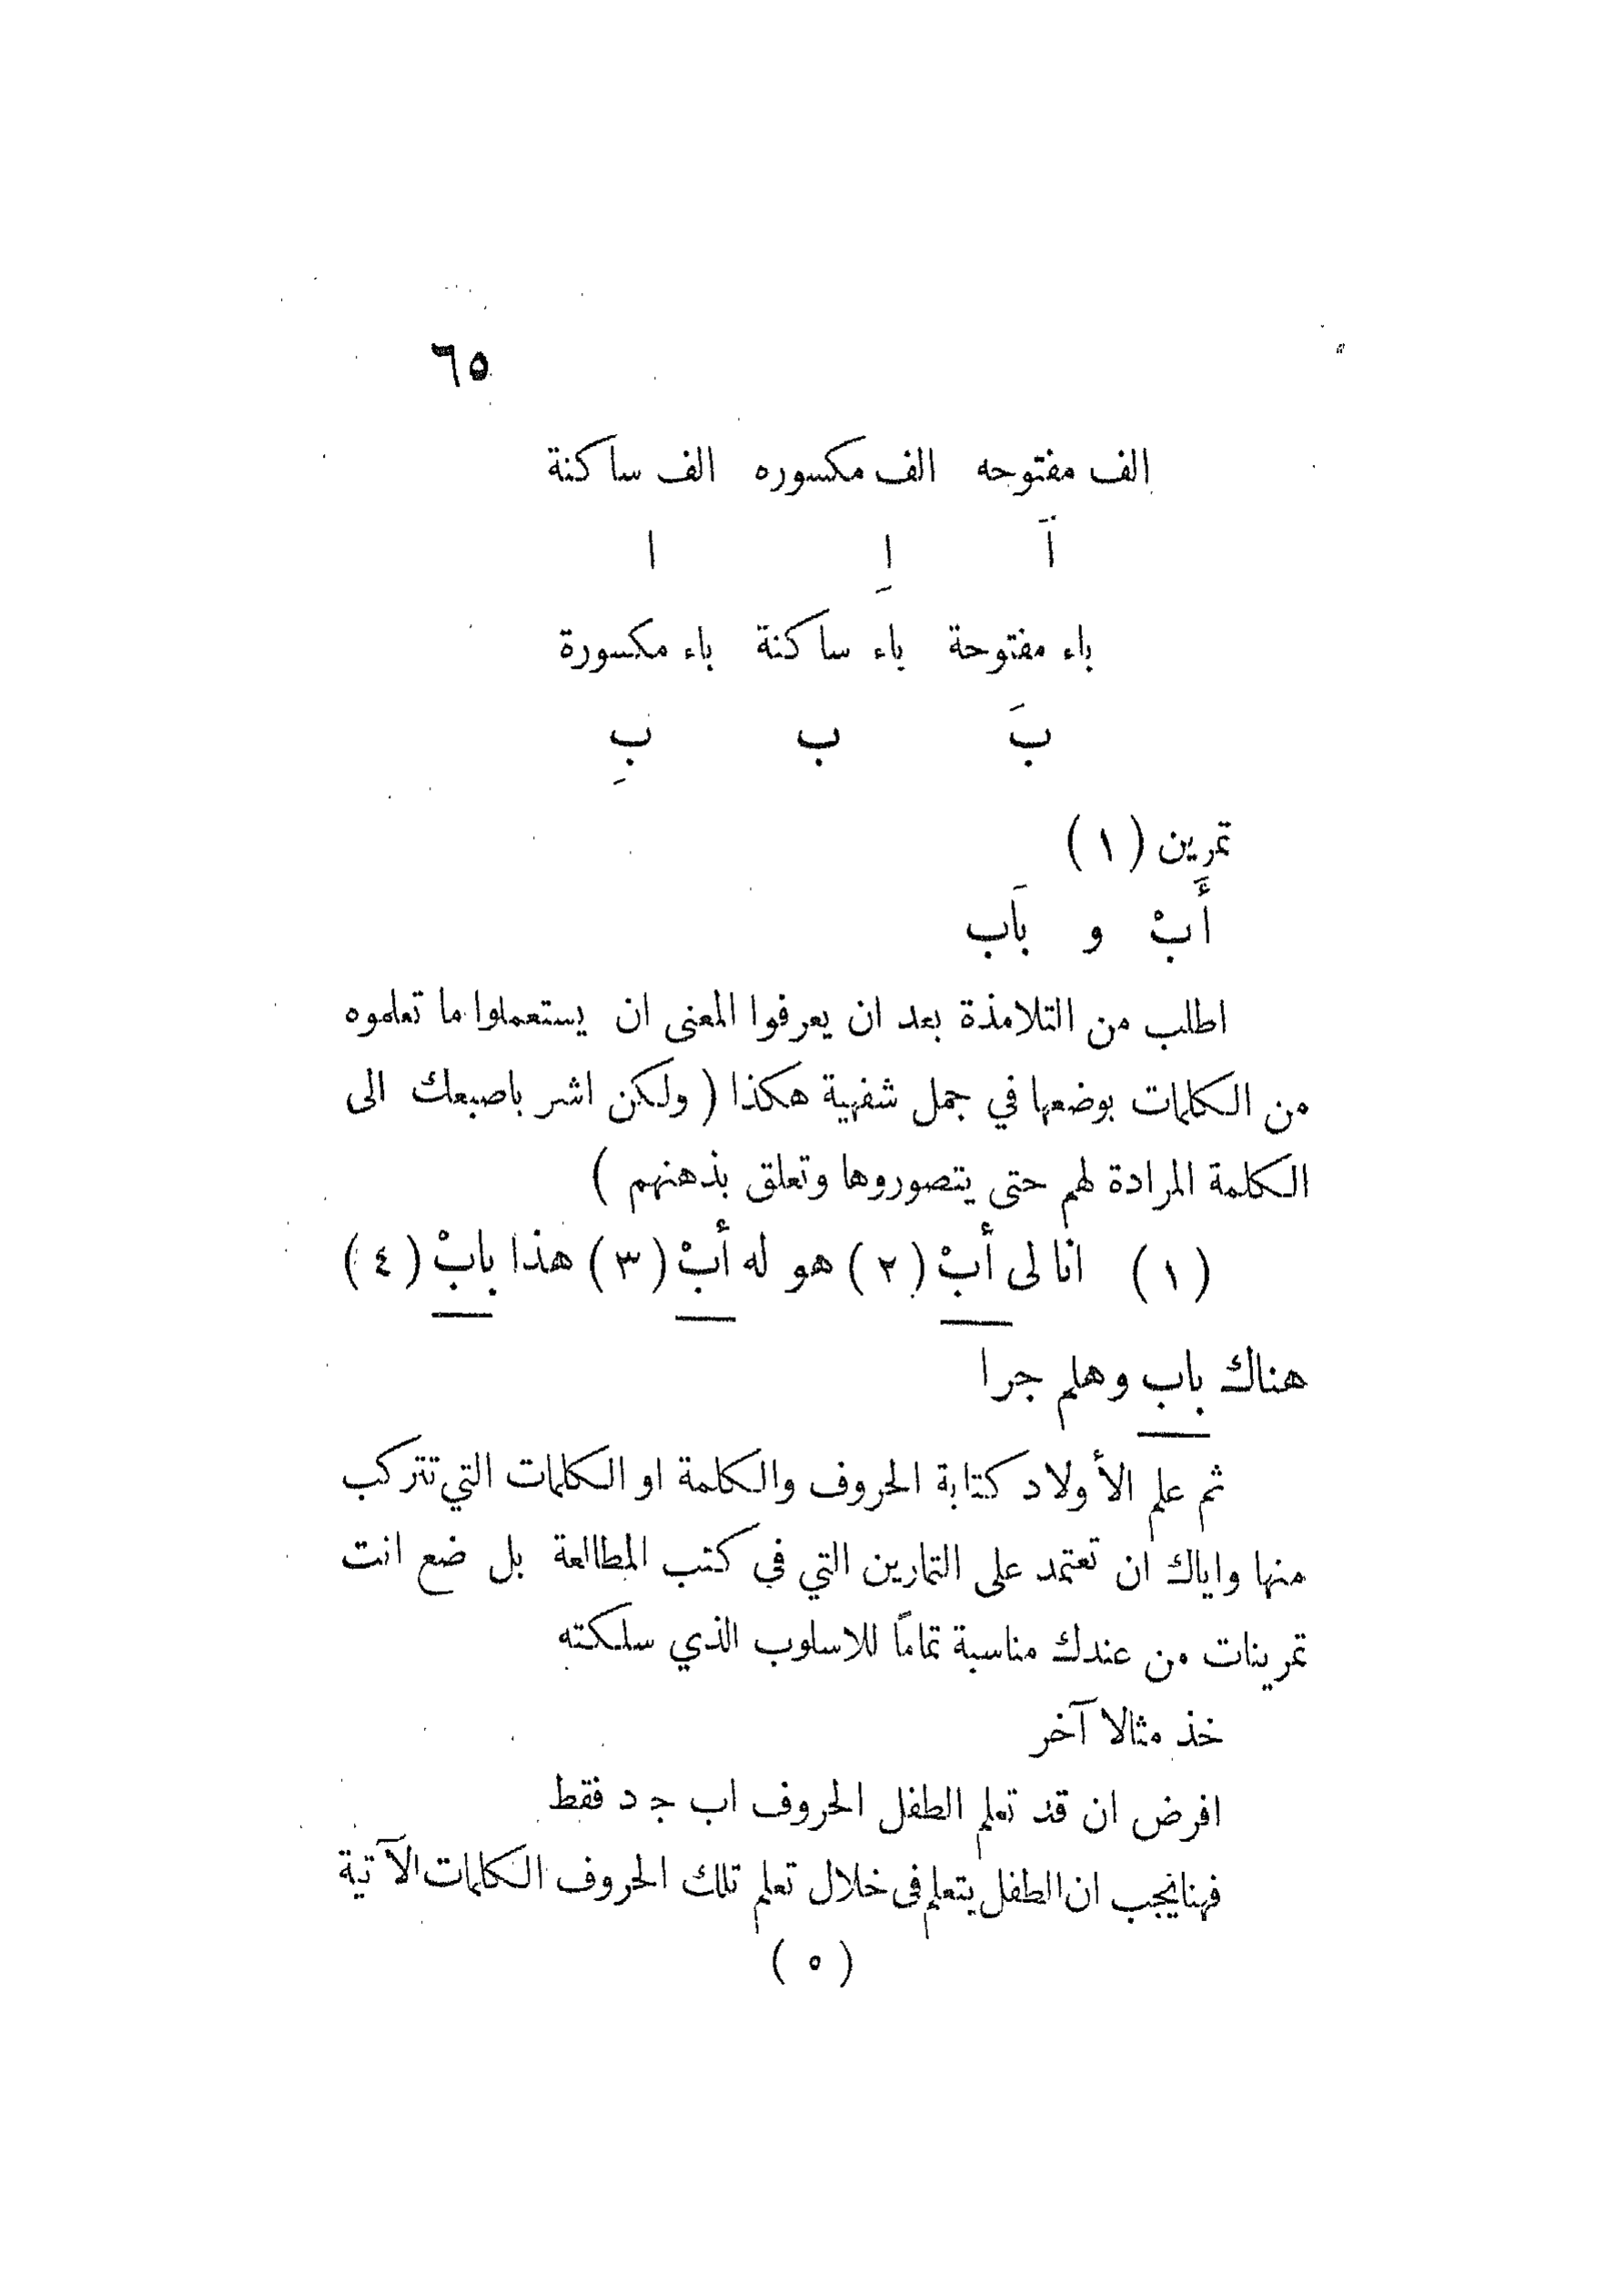 ٦٥
الف مفتوحه الف مكسوره الف ساكنة
اَ اِ ا
باء مفتوحة باء ساكنة باء مكسورة
بَ ب بِ
تمرين (١)
أَبْ و بَاب
اطلب من التلامذة بعد ان يعرفوا المعنى ان يستعملوا ما تعلموه
من الكلمات بوضعها في جمل شفهية هكذا ( ولكن اشر باصبعك الى
الكلمة المرادة لهم حتى يتصوروها وتعلق بذهنهم )
(١) انا لى أبْ (٢) هو له أبْ (٣) هذا بابْ (٤)
هناك باب وهلم جرا
ثم علم الأولاد كتابة الحروف والكلمة او الكلمات التي تتركب
منها واياك ان تعتمد على التمارين التي في كتب المطالعة بل ضع انت
تمرينات من عندك مناسبة تماماً للاسلوب الذي سلكته
خذ مثالا آخر
افرض ان قد تعلم الطفل الحروف اب ج د فقط
فهنا يجب ان الطفل يتعلم فى خلال تعلم تلك الحروف الكلمات الآتية
(٥)